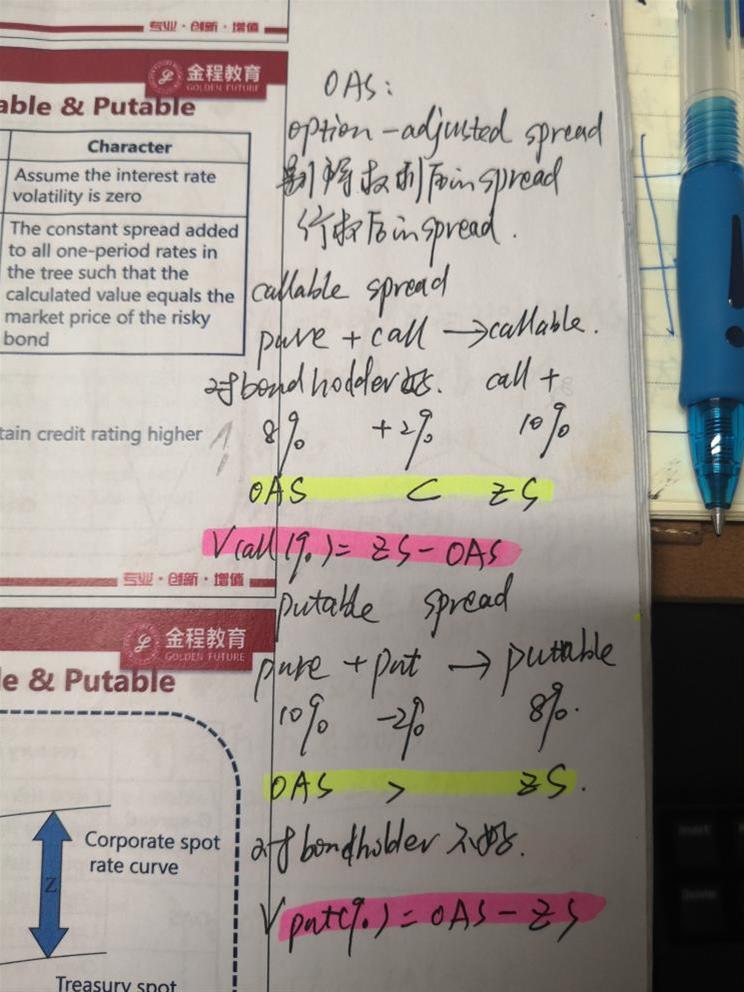 专业·创新·增值
金程教育
GOLDEN FUTURE
able & Putable
Character
Assume the interest rate
volatility is zero
The constant spread added
to all one-period rates in
the tree such that the
calculated value equals the
market price of the risky
bond
tain credit rating higher
专业·创新·增值
OAS:
option-adjusted spread
剔除权利后in spread
行权后in spread.
callable spread
pure + call → callable.
对bond hodder好. call +
8% +2% 10%
OAS < ZS
Vcall(%) = ZS - OAS
putable spread
pure + put → putable
10% -2% 8%.
OAS > ZS.
对bondholder不好.
Vput(%) = OAS - ZS
金程教育
GOLDEN FUTURE
le & Putable
Corporate spot
rate curve
Z
Treasury spot